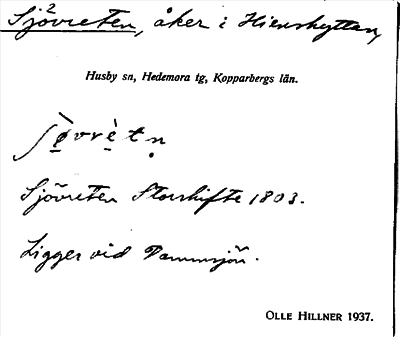 Sjövreten, åker i Hienshyttan,
Husby sn, Hedemora tg, Kopparbergs län.
Sjövreten Storskifte 1803.
Ligger vid Dammsjön.
OLLE HILLNER 1937.